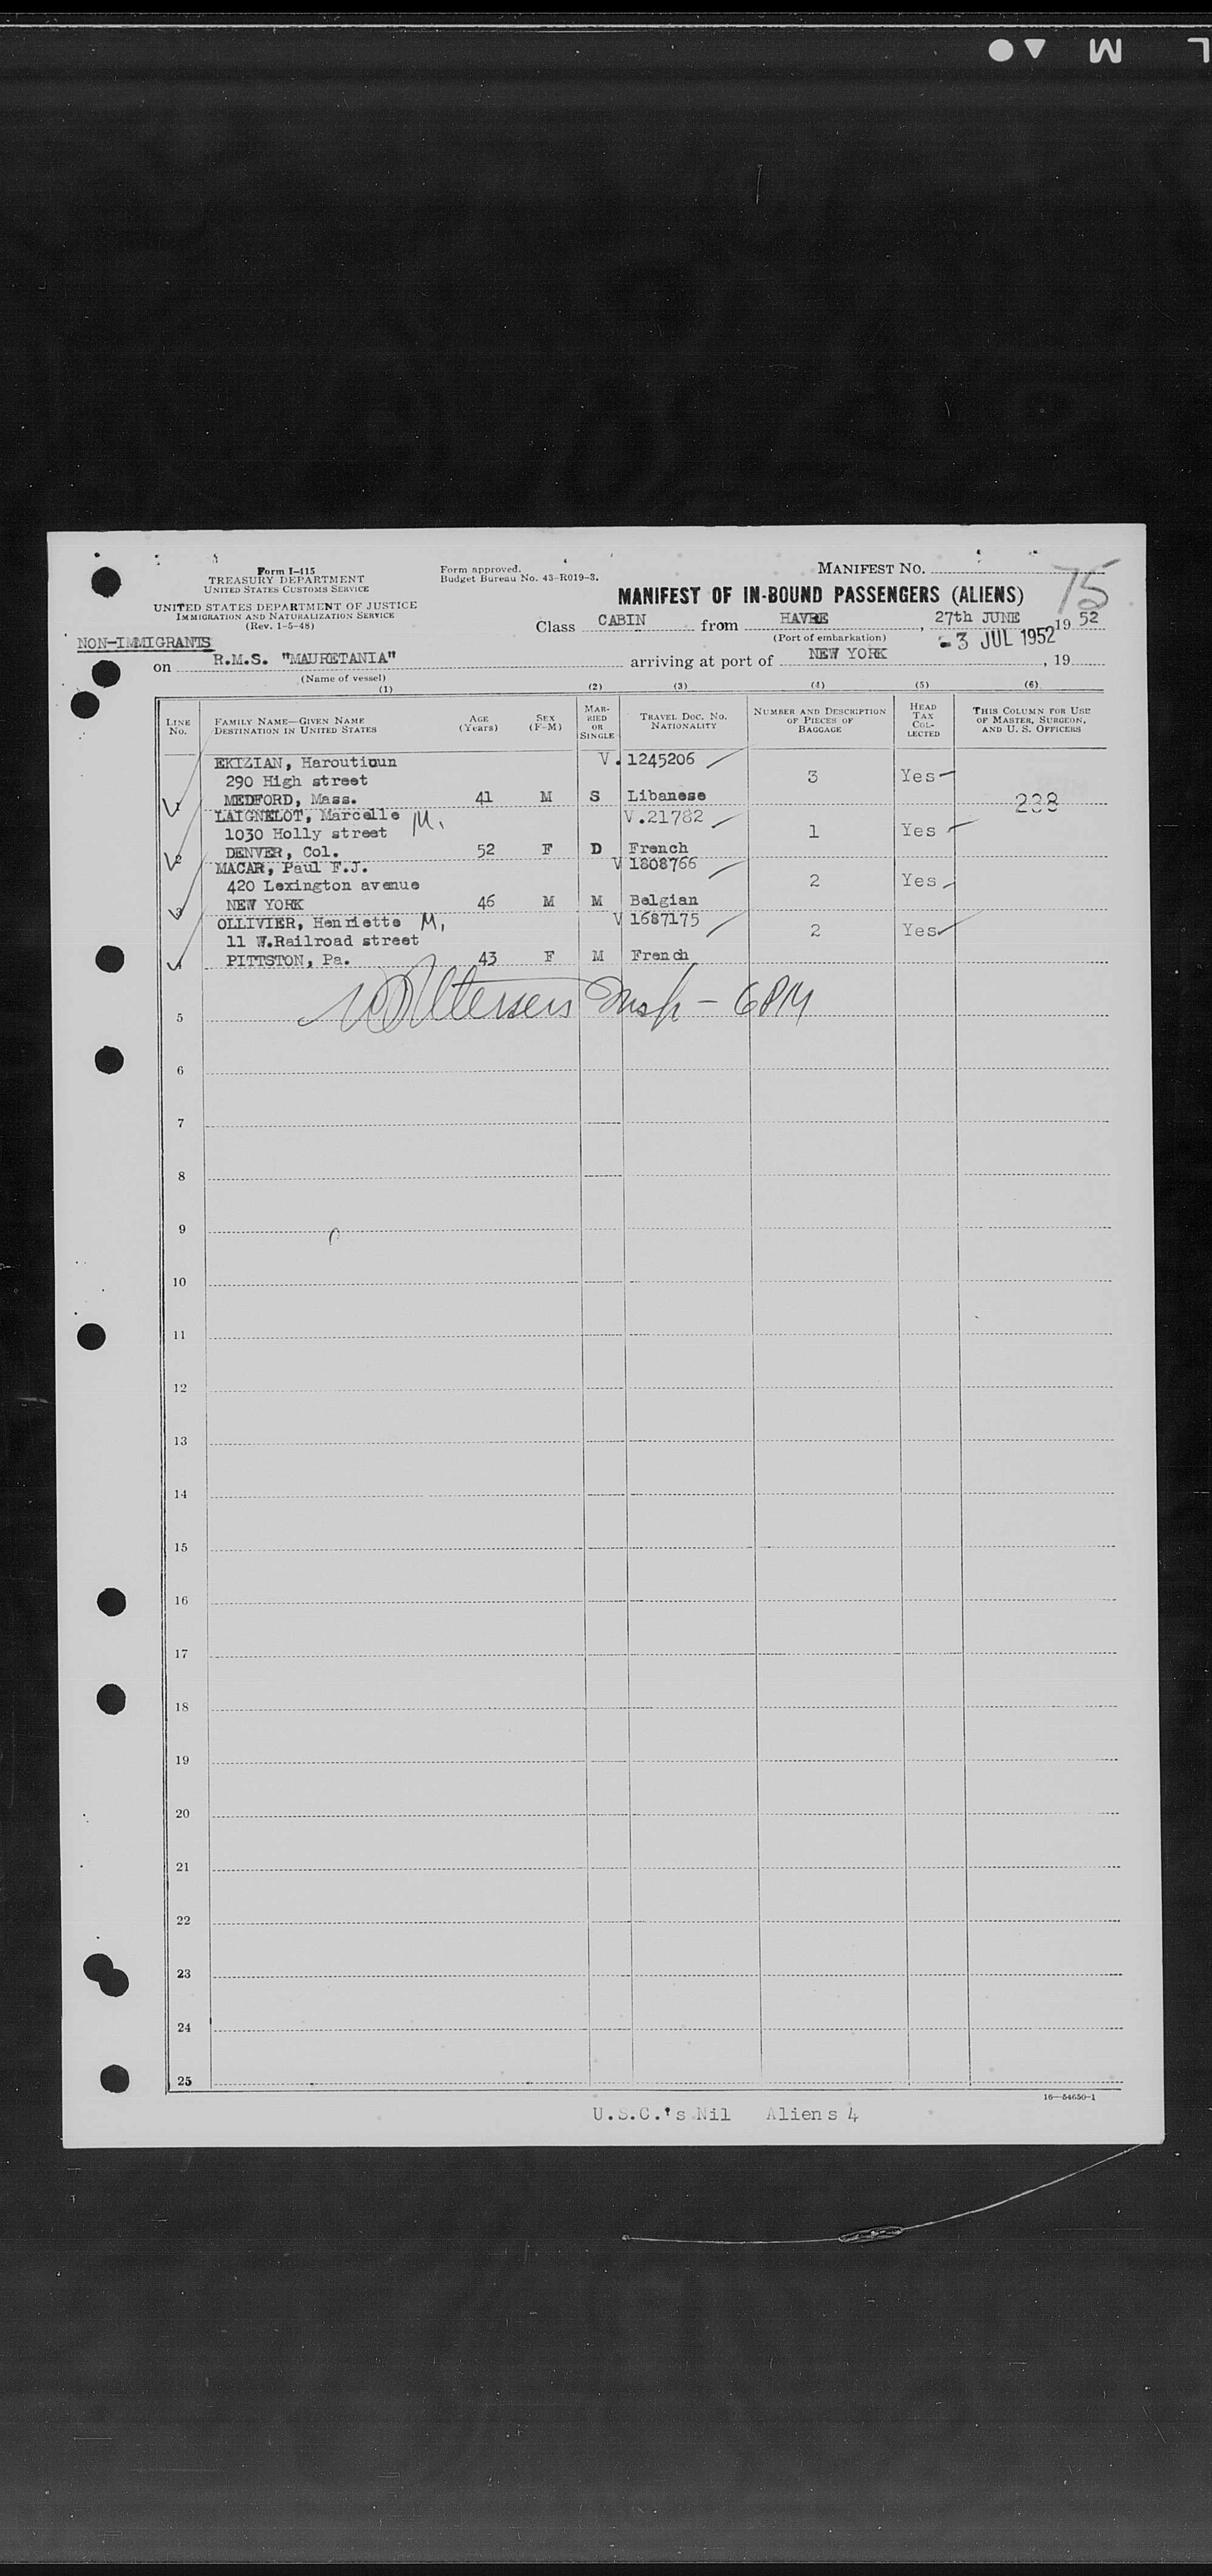 L M
Form I-415
TREASURY DEPARTMENT
UNITED STATES CUSTOMS SERVICE
UNITED STATES DEPARTMENT OF JUSTICE
IMMIGRATION AND NATURALIZATION SERVICE
(Rev. 1-5-48)
Form approved.
Budget Bureau No. 43-R019-3.
MANIFEST NO.
75
MANIFEST OF IN-BOUND PASSENGERS (ALIENS)
NON-IMMIGRANTS
Class CABIN from HAVRE, 27th JUNE 1952
(Port of embarkation)
-3 JUL 1952
on R.M.S. "MAURETANIA" arriving at port of NEW YORK, 19
(Name of vessel)
(1) (2) (3) (4) (5) (6)
LINE No. FAMILY NAME—GIVEN NAME DESTINATION IN UNITED STATES AGE (Years) SEX (F-M) MARRIED OR SINGLE TRAVEL DOC. NO. NATIONALITY NUMBER AND DESCRIPTION OF PIECES OF BAGGAGE HEAD TAX COLLECTED THIS COLUMN FOR USE OF MASTER, SURGEON, AND U. S. OFFICERS
EKIZIAN, Haroutioun V. 1245206
290 High street 3 Yes
1 MEDFORD, Mass. 41 M S Libanese 238
LAIGNELOT, Marcelle M. V.21782
1030 Holly street 1 Yes
2 DENVER, Col. 52 F D French
MACAR, Paul F.J. V 1808766
420 Lexington avenue 2 Yes
3 NEW YORK 46 M M Belgian
OLLIVIER, Henriette M. V 1687175
11 W.Railroad street 2 Yes
4 PITTSTON, Pa. 43 F M French
Insp - 6PM
5
6
7
8
9
10
11
12
13
14
15
16
17
18
19
20
21
22
23
24
25
16—54650-1
U.S.C.'s Nil Aliens 4